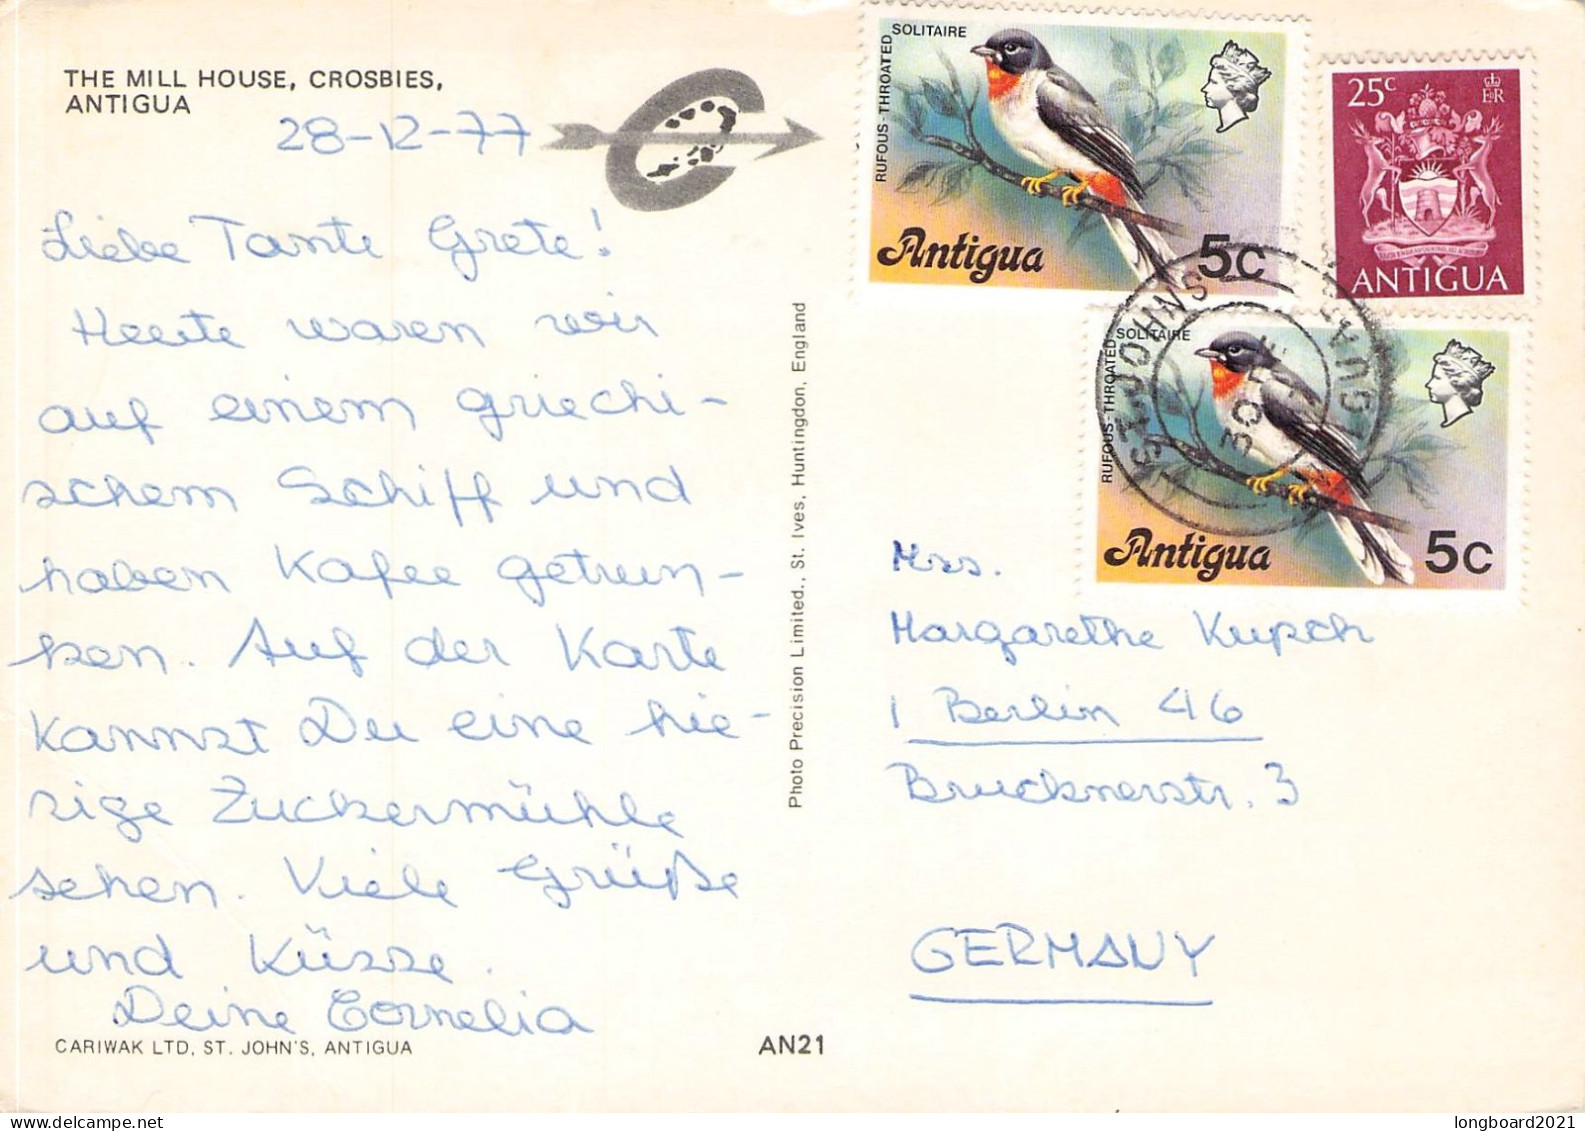 THE MILL HOUSE, CROSBIES,
ANTIGUA
28-12-77
Liebe Tante Grete!
Heute waren wir
auf einem griechi-
schem Schiff und
haben Kafee getrun-
ken. Auf der Karte
kannst Du eine hie-
sige Zuckermühle
sehen. Viele Grüße
und Küsse.
Deine Cornelia
CARIWAK LTD, ST. JOHN'S, ANTIGUA
AN21
Photo Precision Limited., St. Ives, Huntingdon, England
RUFOUS-THROATED SOLITAIRE
Antigua 5c
25c
E II R
ANTIGUA
RUFOUS-THROATED SOLITAIRE
Antigua 5c
ST. JOHNS
30 DE
Mrs.
Margarethe Kupsch
1 Berlin 46
Brucknerstr. 3
GERMANY
longboard2021